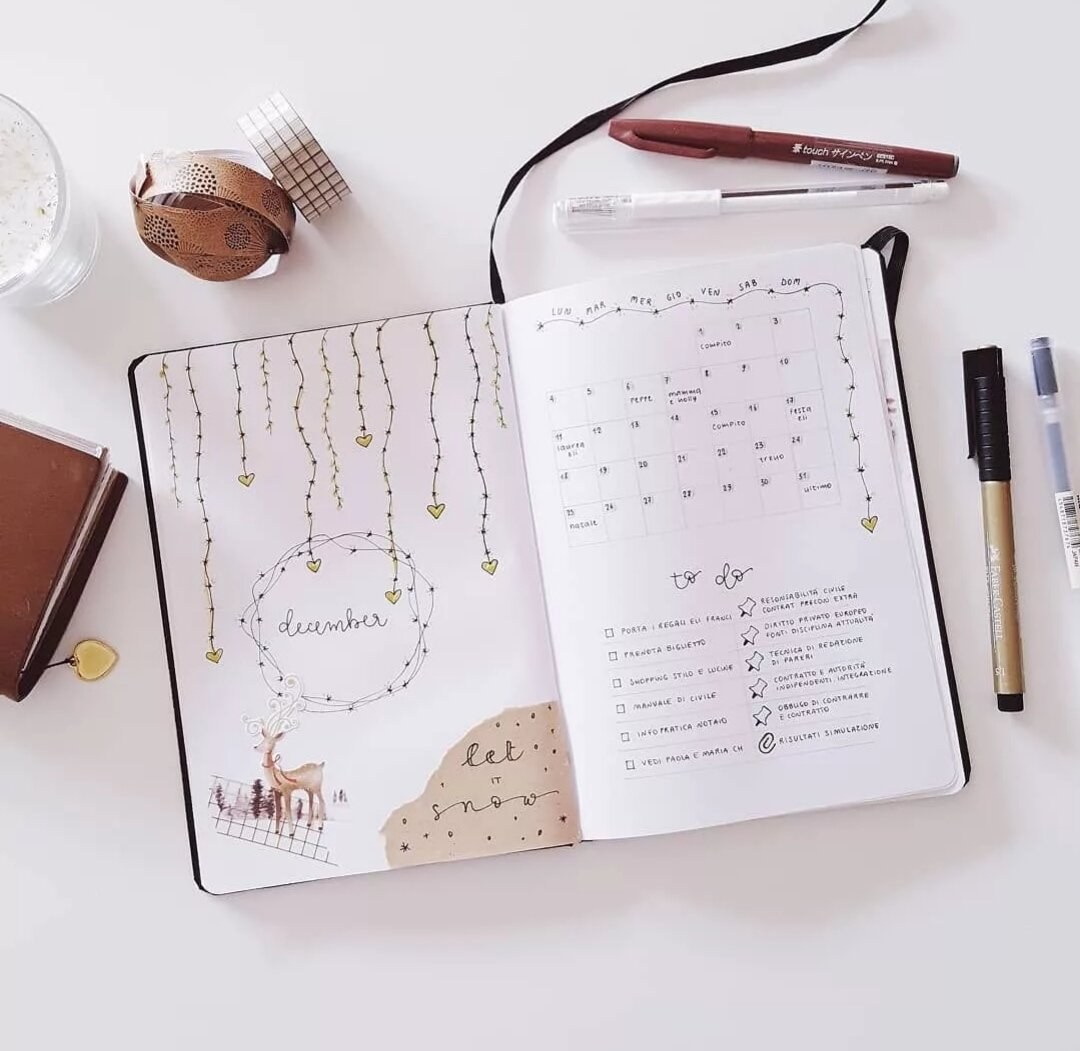 touch サインペン
FABER-CASTELL
december
let
IT
snow
LUN MAR MER GIO VEN SAB DOM
1 2 3
COMPITO
4 5 6 7 8 9 10
PEPPE mamma
e holly
11 12 13 14 15 16 17
laurea COMPITO festa
eli eli
18 19 20 21 22 23 24
treno
25 26 27 28 29 30 31
natale ultimo
to do
PORTA I REGALI ELI FRANCI
PRENOTA BIGLIETTO
SHOPPING STILO E LUCINE
MANUALE DI CIVILE
INFO PRATICA NOTAIO
VEDI PAOLA E MARIA CH
RESONSABILITÀ CIVILE
CONTRAT PRECONI EXTRA
DIRITTO PRIVATO EUROPEO
FONTI DISCIPLINA ATTUALITÀ
TECNICA DI REDAZIONE
DI PARERI
CONTRATTO E AUTORITÀ
INDIPENDENTI INTEGRAZIONE
OBBLIGO DI CONTRARRE
E CONTRATTO
RISULTATI SIMULAZIONE